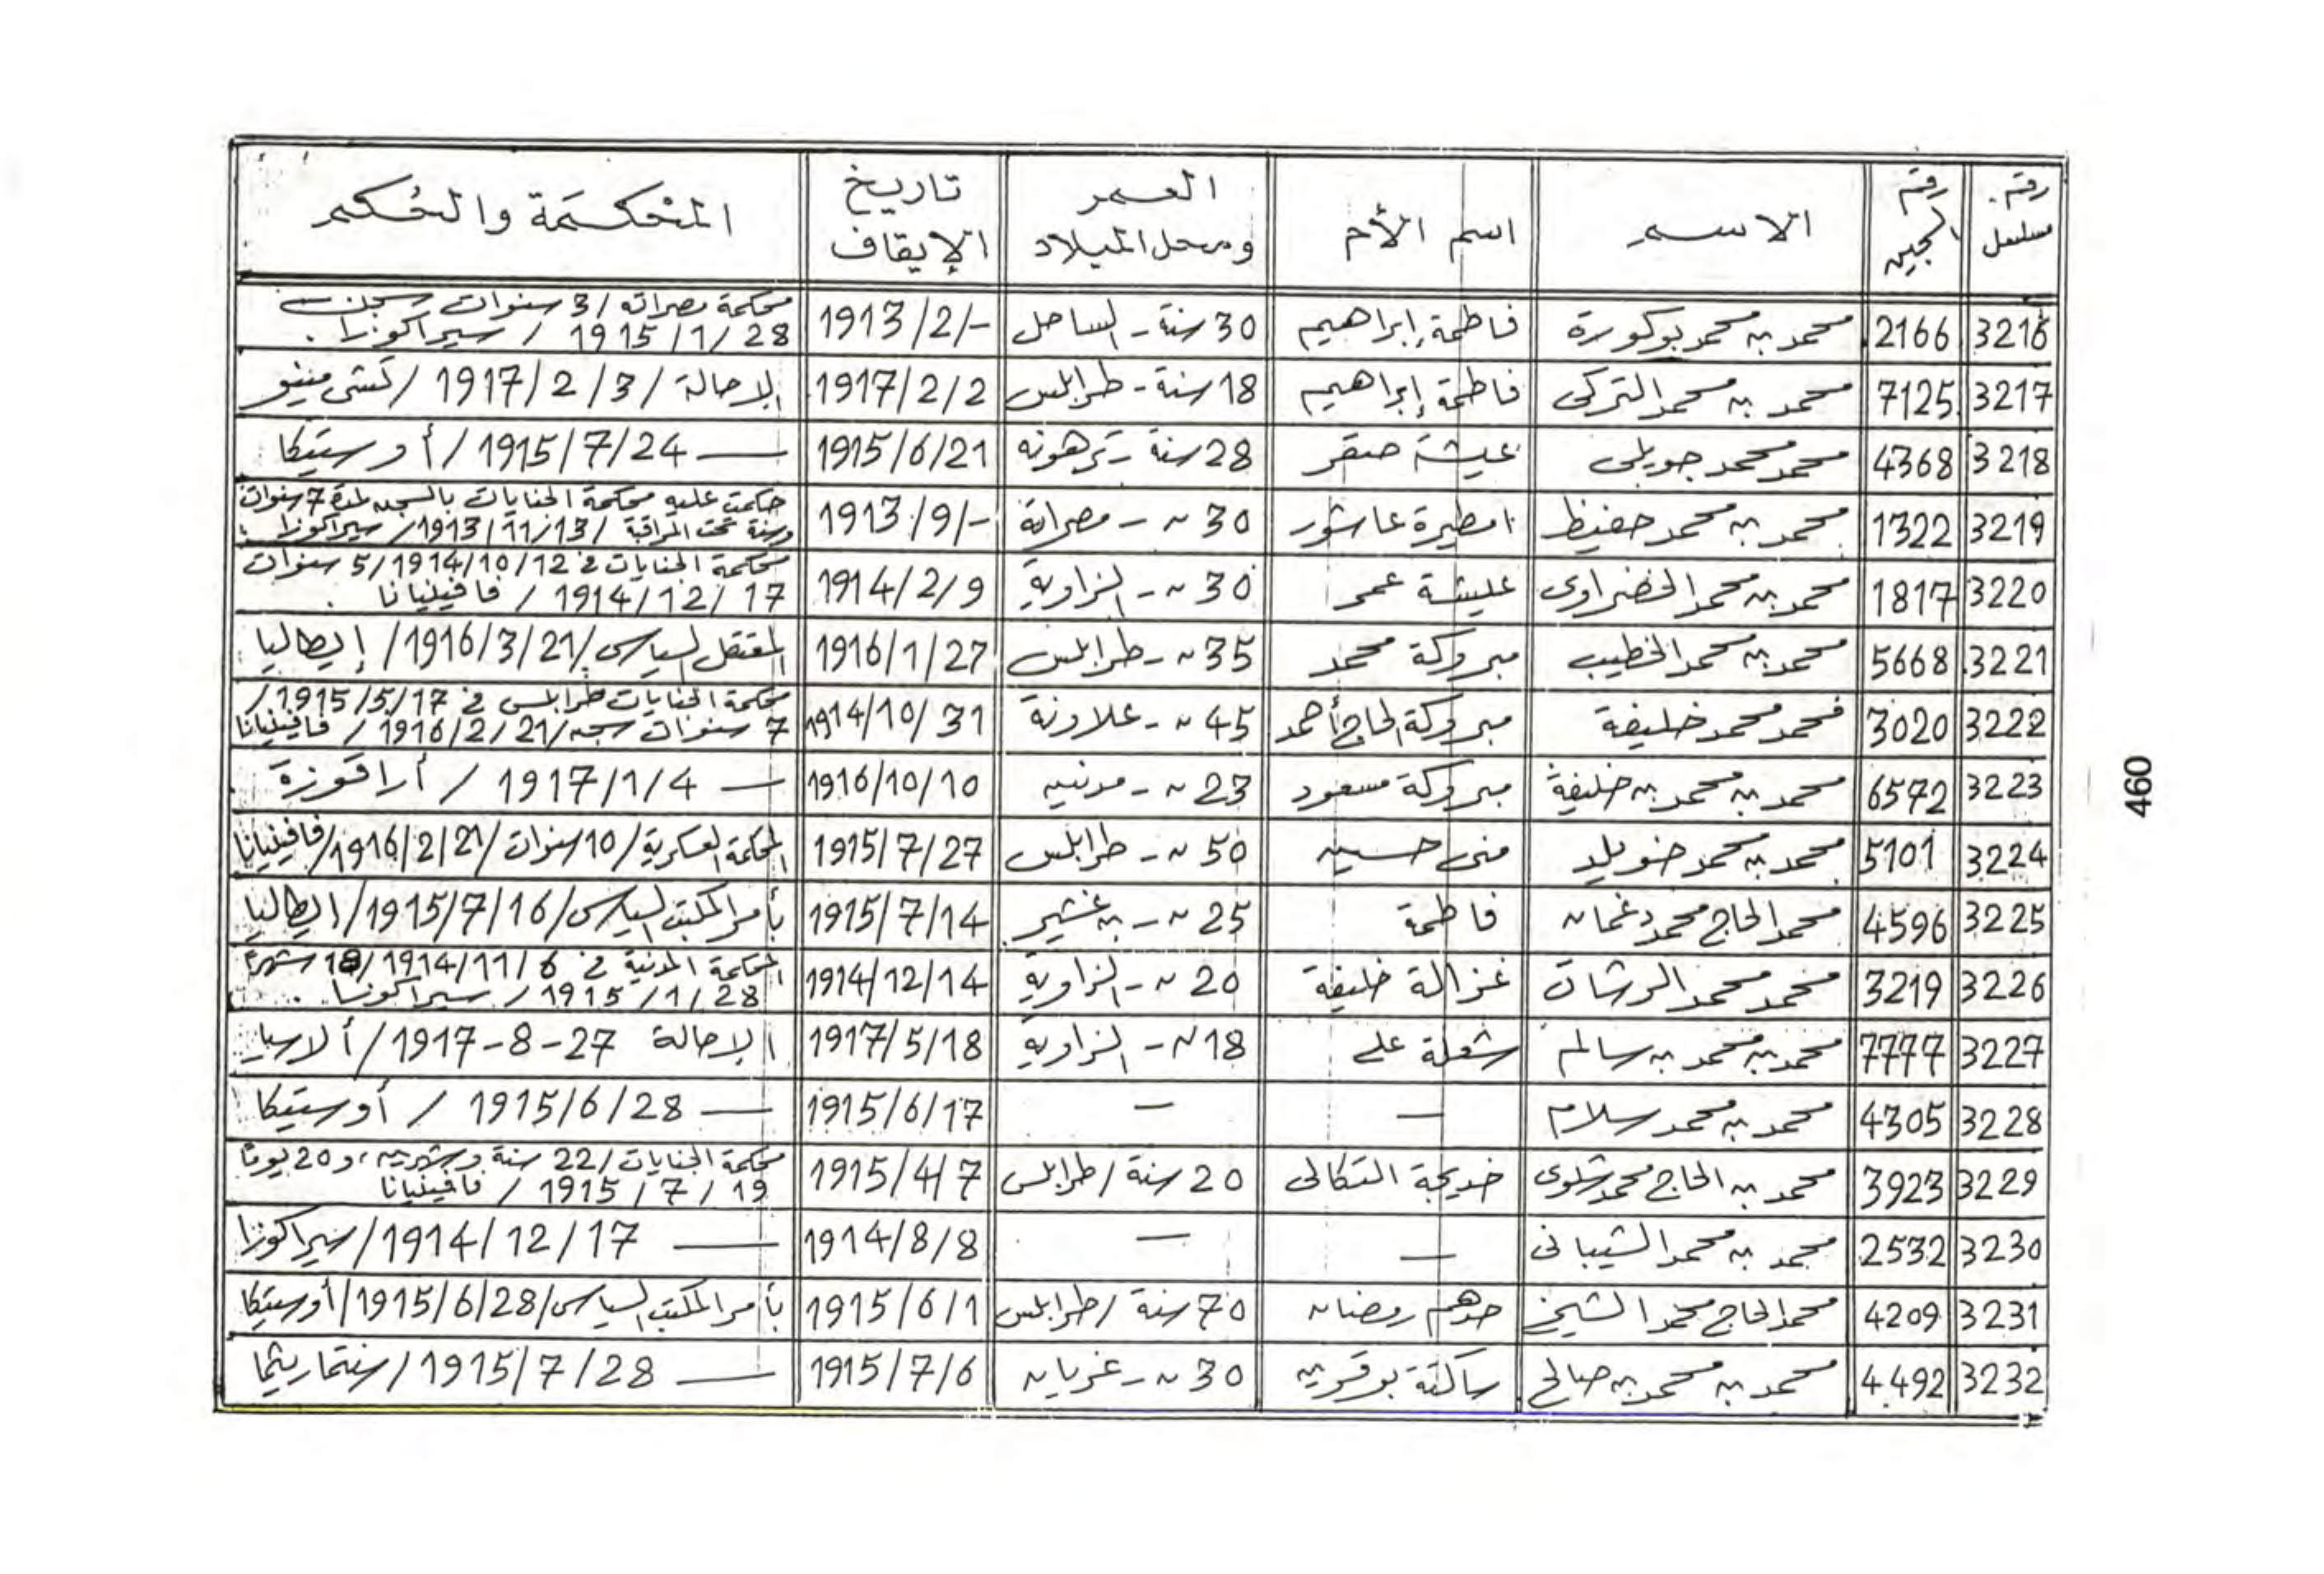 رقم مسلسل | رقم السجين | الاسم | اسم الأم | العمر ومحل الميلاد | تاريخ الإيقاف | المحكمة والحكم
3216 | 2166 | محمد بن محمد بوكورة | فاطمة إبراهيم | 30 سنة - الساحل | 1913/2/- | محكمة مصراته / 3 سنوات سجن 1915/1/28 / سيراكوزا.
3217 | 7125 | محمد بن محمد التركى | فاطمة إبراهيم | 18 سنة - طرابلس | 1917/2/2 | الإحالة / 1917/2/3 /
3218 | 4368 | محمد محمد جويلى | عيشة صقر | 28 سنة - ترهونه | 1915/6/21 | — 1915/7/24 / أوستيكا
3219 | 1322 | محمد بن محمد حفيظ | امطيرة عاشور | 30 ~ - مصراتة | 1913/9/- | حكمت عليه محكمة الجنايات بالسجن لمدة 7 سنوات وسنة تحت المراقبة / 1913/11/13 / سيراكوزا
3220 | 1817 | محمد بن محمد الخضراوى | عليشة عمر | 30 ~ - الزاوية | 1914/2/9 | محكمة الجنايات فى 1914/10/12 / 5 سنوات 1914/12/17 / فافينيانا
3221 | 5668 | محمد بن محمد الخطيب | مبروكة محمد | 35 ~ - طرابلس | 1916/1/27 | المعتقل السياسى / 1916/3/21 / إيطاليا
3222 | 3020 | محمد محمد خليفة | مبروكة الحاج أحمد | 45 ~ - علاونة | 1914/10/31 | محكمة الجنايات طرابلس فى 1915/5/17 / 7 سنوات سجن / 1916/2/21 / فافينيانا
3223 | 6572 | محمد بن محمد بن خليفة | مبروكة مسعود | 23 ~ - مدنين | 1916/10/10 | — 1917/1/4 / أراقوزة
3224 | 5101 | محمد بن محمد خويلد | منى حسين | 50 ~ - طرابلس | 1915/7/27 | المحكمة العسكرية / 10 سنوات / 1916/2/21 / فافينيانا
3225 | 4596 | محمد الحاج محمد دغمان | فاطمة | 25 ~ - بن غشير | 1915/7/14 | بأمر المكتب السياسى / 1915/7/16 / إيطاليا
3226 | 3219 | محمد محمد الرشان | غزالة خليفة | 20 ~ - الزاوية | 1914/12/14 | المحكمة المدنية فى 1914/11/6 / 18 شهراً 1915/1/28 / سيراكوسا.
3227 | 7777 | محمد بن محمد بن سالم | شعلة على | 18 ~ - الزاوية | 1917/5/18 | الإحالة 1917-8-27 /
3228 | 4305 | محمد بن محمد سلام | — | — | 1915/6/17 | — 1915/6/28 / أوستيكا
3229 | 3923 | محمد بن الحاج محمد شلوى | خديجة التكالى | 20 سنة / طرابلس | 1915/4/7 | محكمة الجنايات / 22 سنة وشهرين، و20 يومًا 1915/7/19 / فافينيانا
3230 | 2532 | محمد بن محمد الشيبانى | — | — | 1914/8/8 | — 1914/12/17 / سيراكوزا
3231 | 4209 | محمد الحاج محمد الشيخ | حدهم رمضان | 70 سنة / طرابلس | 1915/6/1 | بأمر المكتب السياسى / 1915/6/28 / أوستيكا
3232 | 4492 | محمد بن محمد بن صالح | ساكتة بوقرين | 30 ~ - غريان | 1915/7/6 | — 1915/7/28 /
460